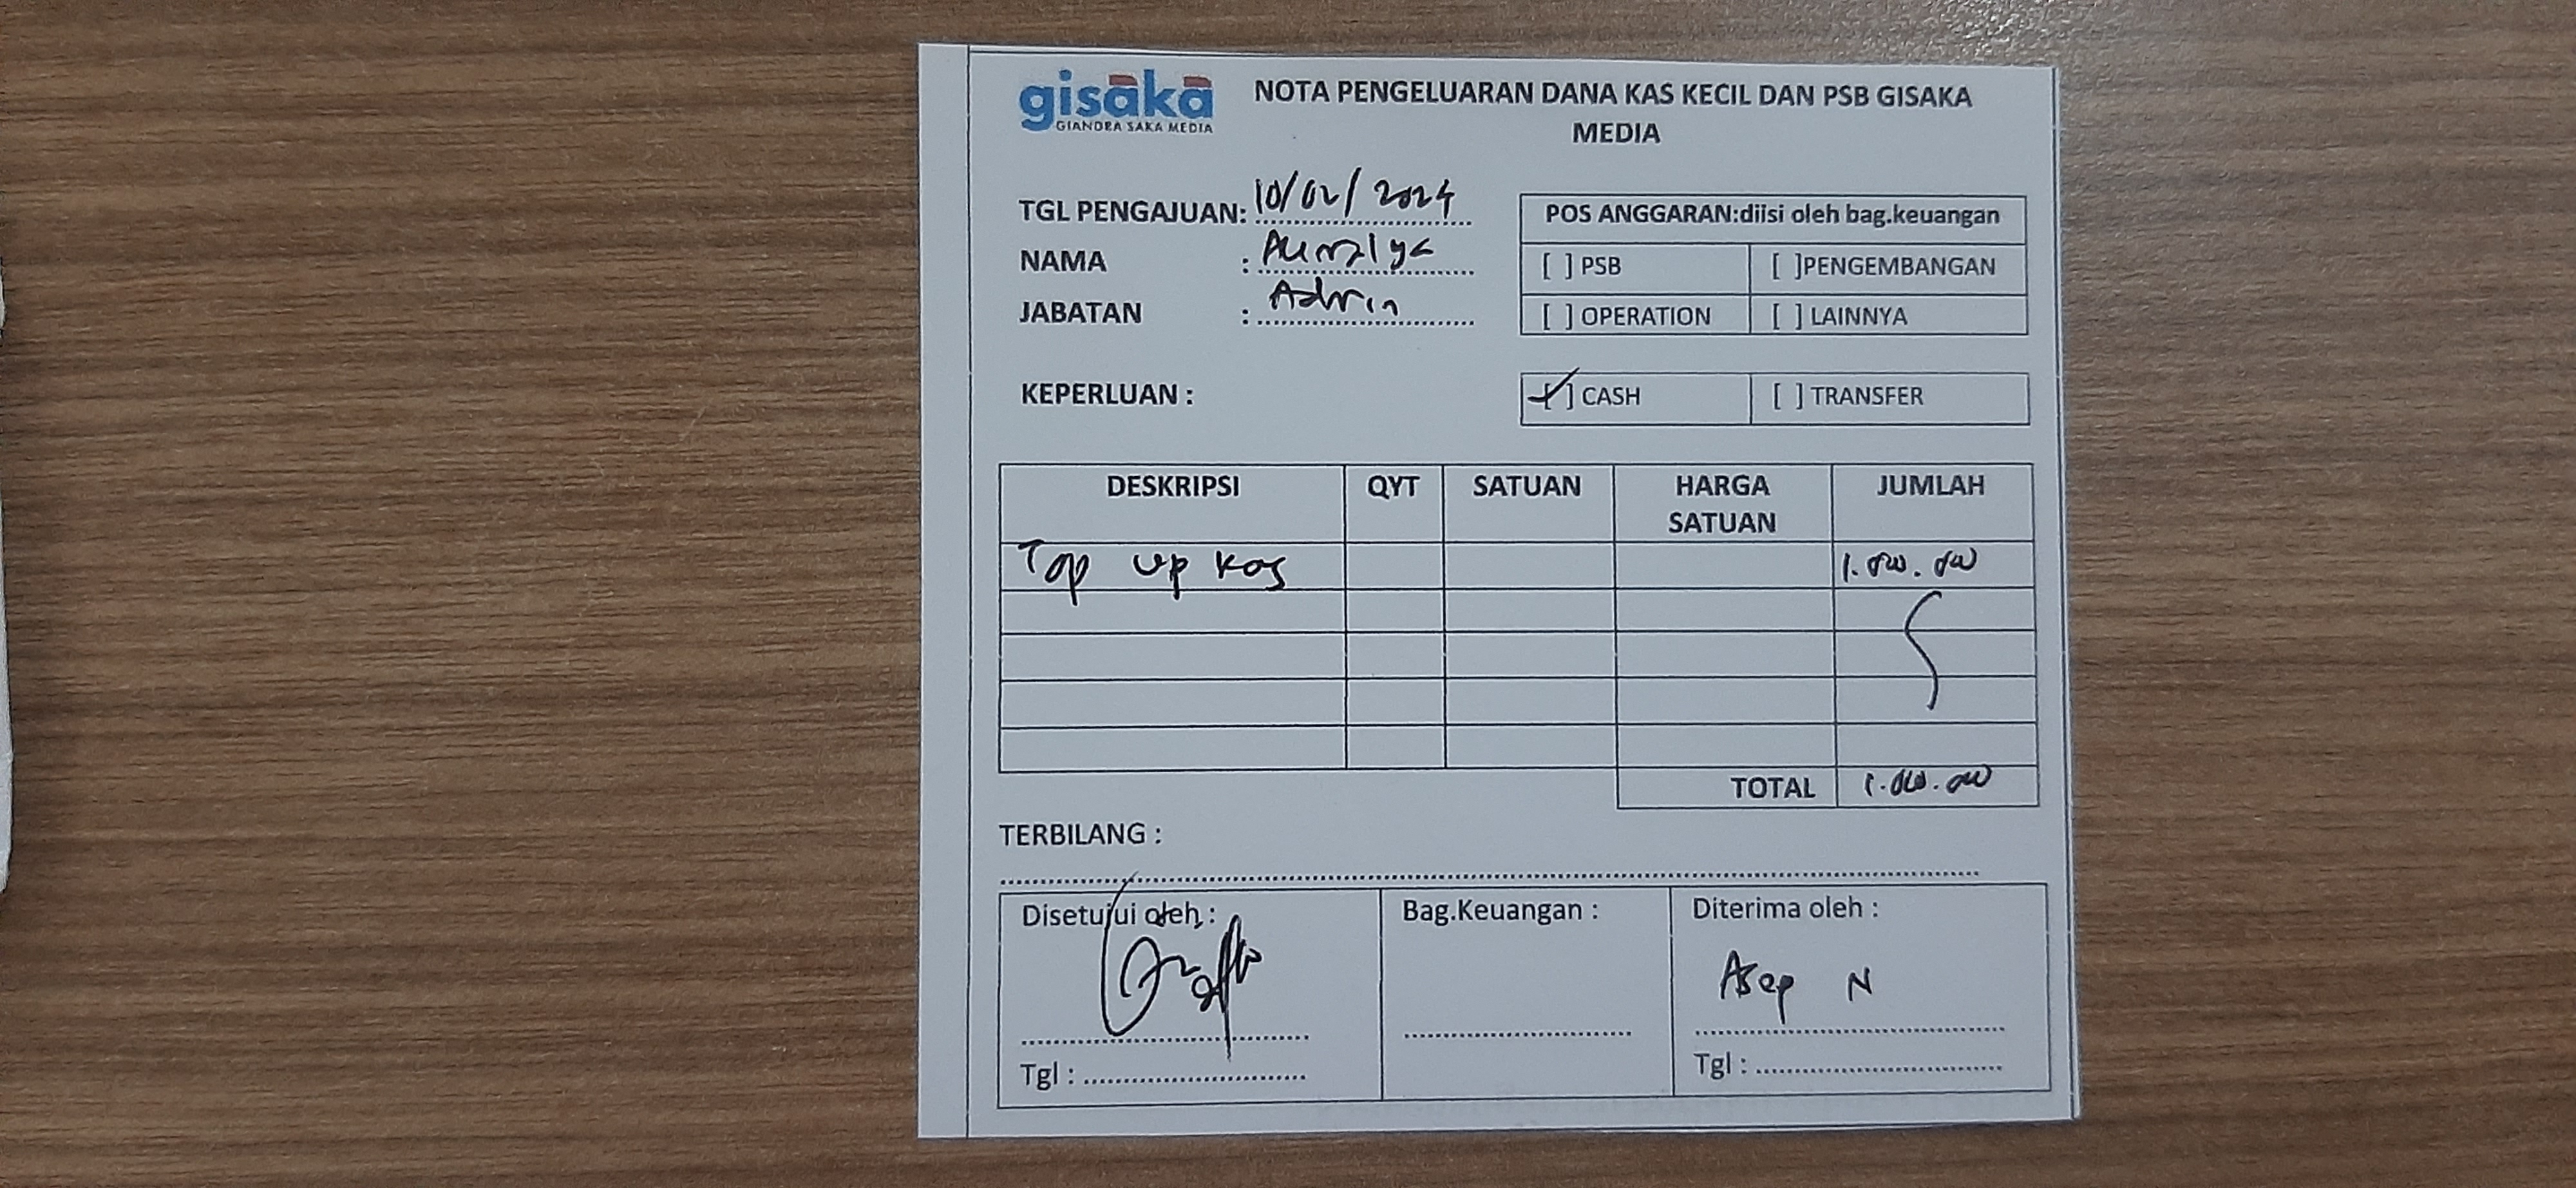 gisaka
GIANDRA SAKA MEDIA
NOTA PENGELUARAN DANA KAS KECIL DAN PSB GISAKA
MEDIA
TGL PENGAJUAN: 10/02/2024
NAMA :
JABATAN : Admin
POS ANGGARAN:diisi oleh bag.keuangan
[ ] PSB [ ]PENGEMBANGAN
[ ] OPERATION [ ] LAINNYA
KEPERLUAN :
[✓] CASH [ ] TRANSFER
DESKRIPSI QYT SATUAN HARGA SATUAN JUMLAH
Top up kas 1.000.000
TOTAL 1.000.000
TERBILANG :
Disetujui oleh, : Bag.Keuangan : Diterima oleh :
Asep N
Tgl : Tgl :